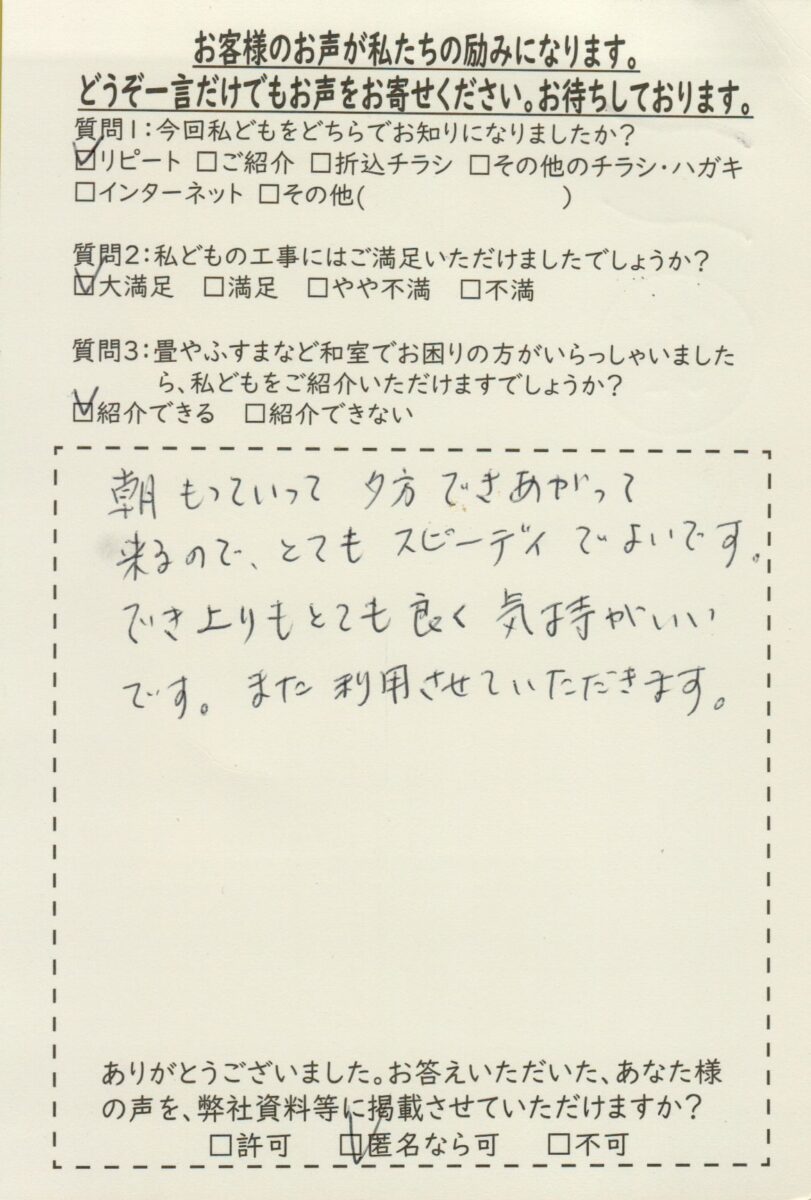 お客様のお声が私たちの励みになります。
どうぞ一言だけでもお声をお寄せください。お待ちしております。
質問1:今回私どもをどちらでお知りになりましたか?
☑リピート □ご紹介 □折込チラシ □その他のチラシ・ハガキ
□インターネット □その他( )
質問2:私どもの工事にはご満足いただけましたでしょうか?
☑大満足 □満足 □やや不満 □不満
質問3:畳やふすまなど和室でお困りの方がいらっしゃいました
ら、私どもをご紹介いただけますでしょうか?
☑紹介できる □紹介できない
朝もっていって 夕方できあがって
来るので、とてもスピーディでよいです。
でき上りもとても良く 気持がいい
です。また利用させていただきます。
ありがとうございました。お答えいただいた、あなた様
の声を、弊社資料等に掲載させていただけますか?
□許可 ☑匿名なら可 □不可